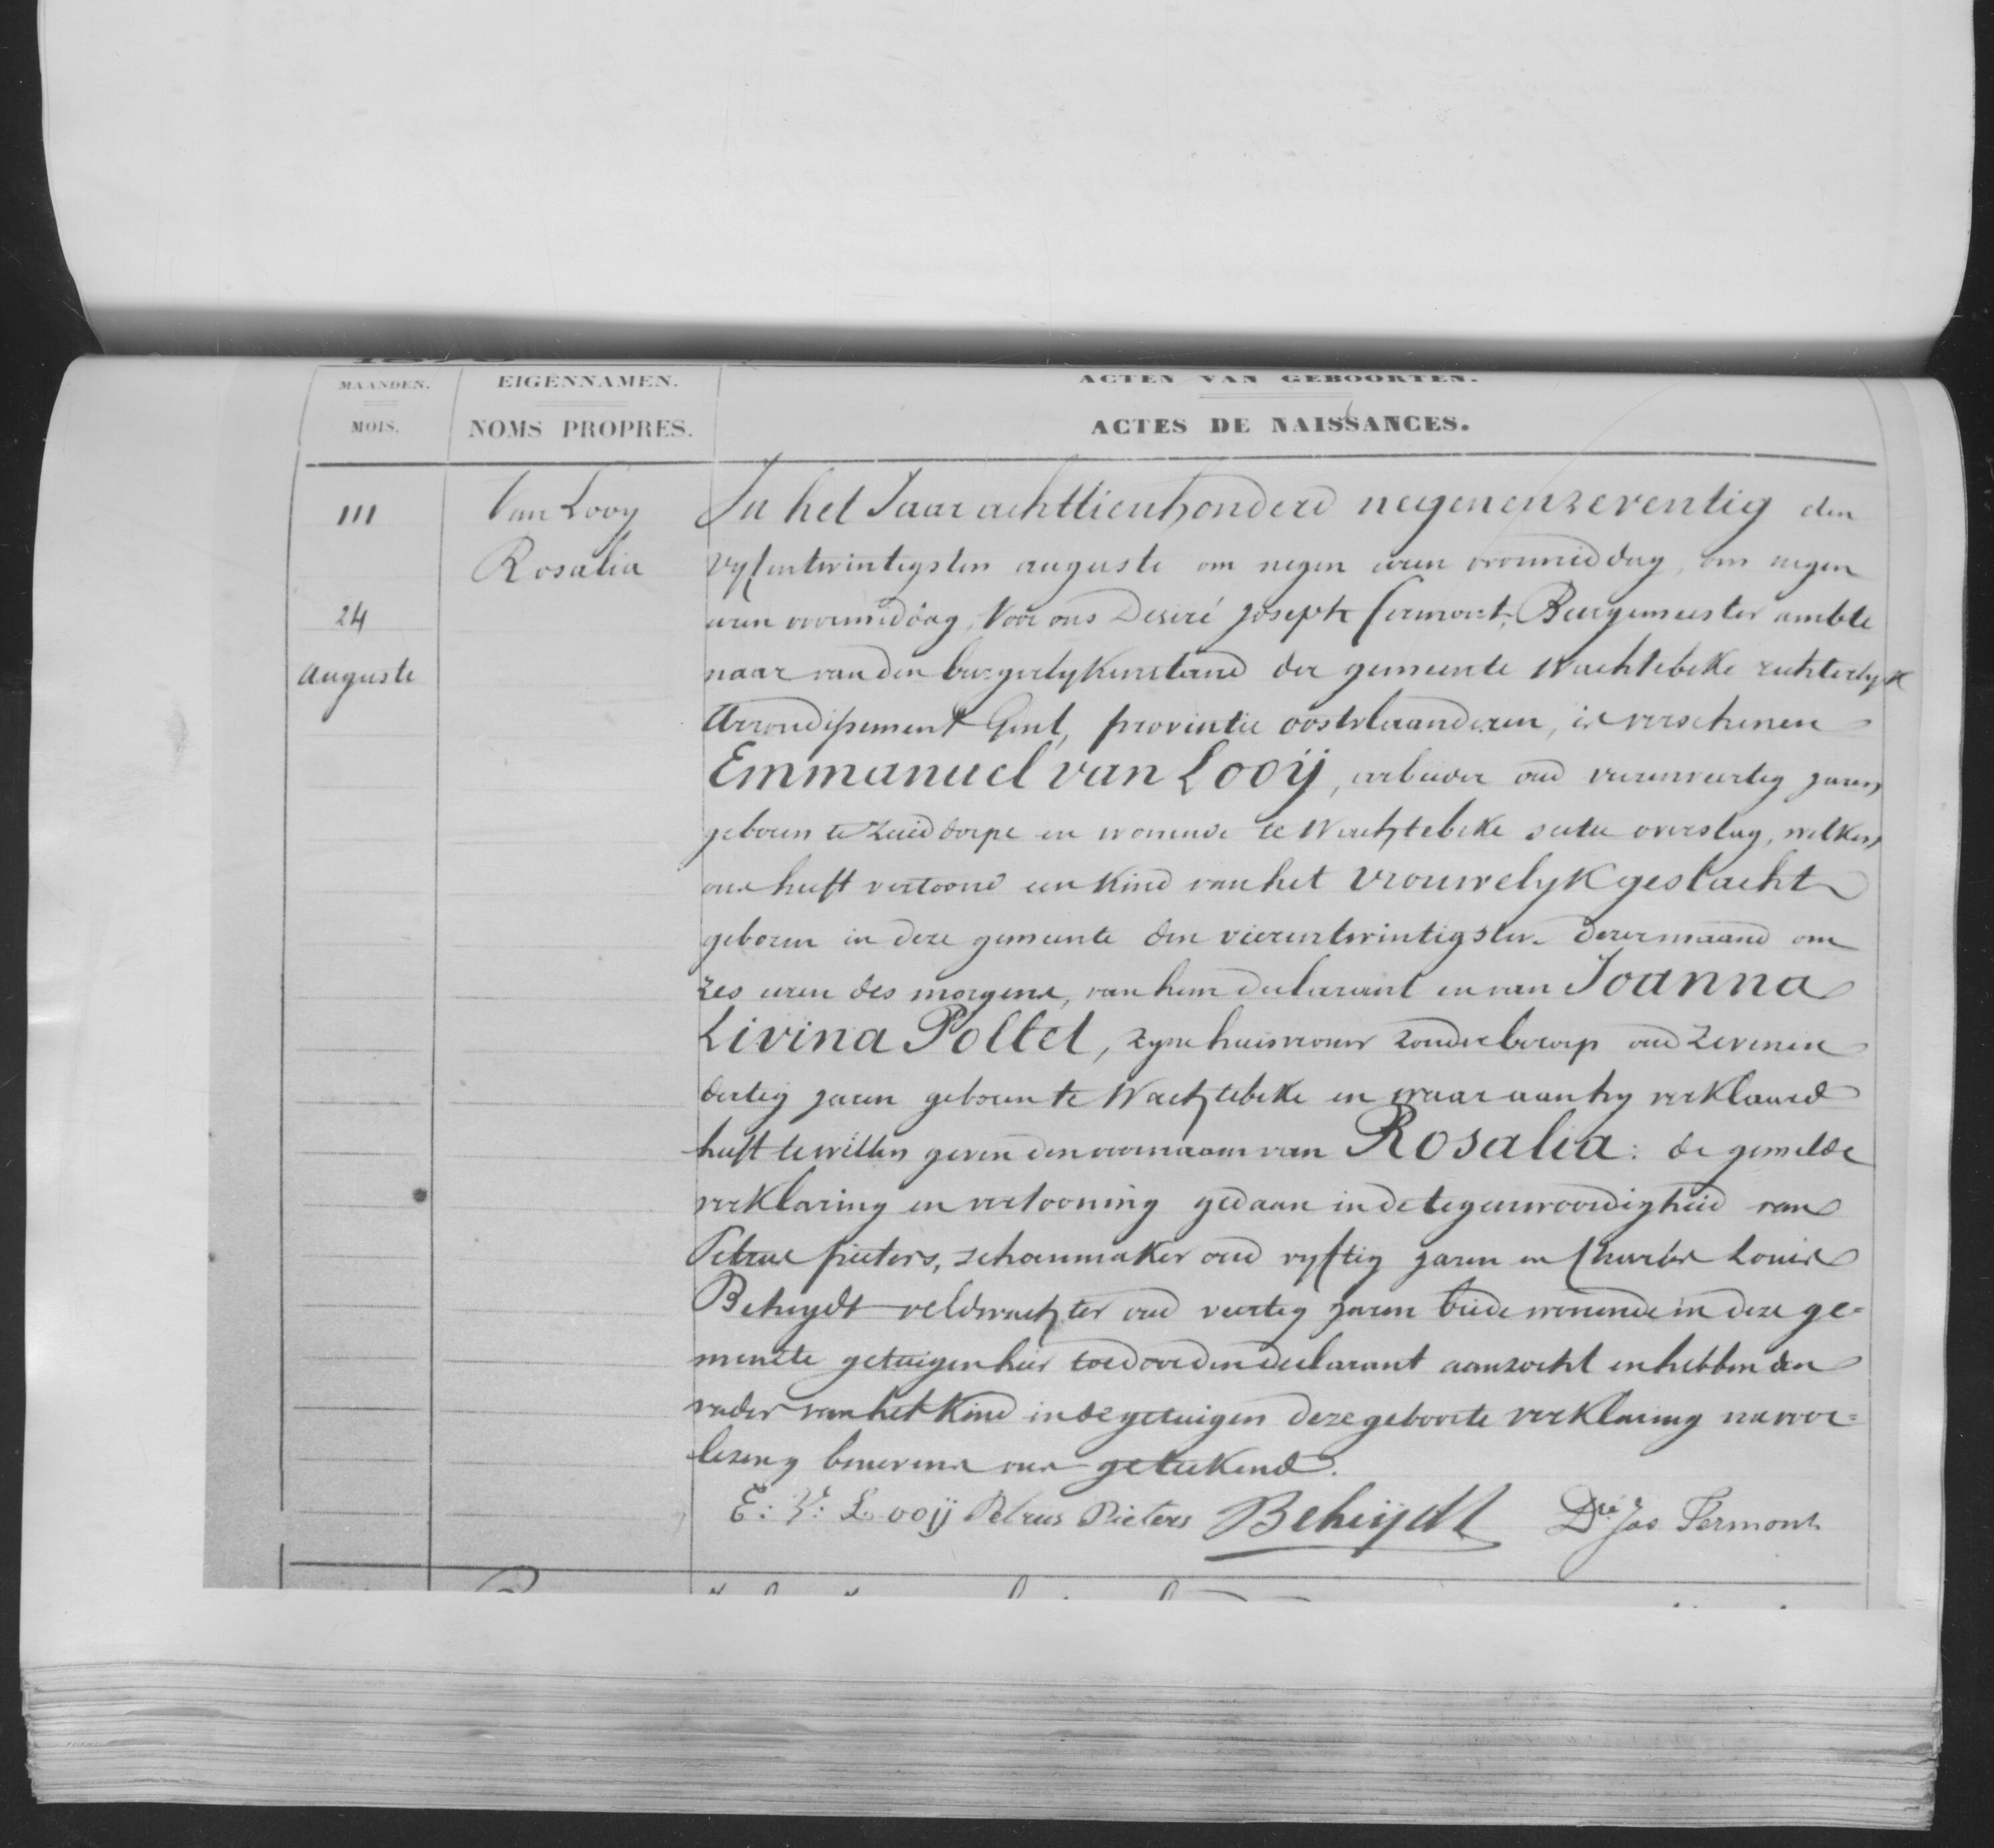 MAANDEN.
MOIS.
EIGENNAMEN.
NOMS PROPRES.
ACTEN VAN GEBOORTEN.
ACTES DE NAISSANCES.
111
24
auguste
Van Looy
Rosalia
In het Jaar achttienhonderd negenenzeventig den
vyfentwintigsten auguste om negen uren voormiddag, om negen
uren voormiddag, Voor ons Desiré Joseph Fermont, Burgemeester ambte
naar van den burgerlyken stand der gemeente Wachtebeke rechterlyk
Arrondissement Gent, provintie oostvlaanderen, is verschenen
Emmanuel van Looÿ, arbeider oud vierenveertig jaren
geboren te Zuiddorpe en wonende te Wachtebeke sectie overslag, welken
ons heeft vertoond een Kind van het vrouwelyk geslacht
geboren in deze gemeente den vierentwintigsten dezer maand om
zes uren des morgens, van hem declarant en van Joanna
Livina Poltet, zyne huisvrouw zonder beroep oud zevenen
dertig jaren geboren te Wachtebeke en waar aan hy verklaard
heeft te willen geven den voornaam van Rosalia: de gemelde
verklaring en vertooning gedaan in de tegenwoordigheid van
Petrus pieters, schoenmaker oud vyftig jaren en Charles Louis
Beheydt veldwachter oud veertig jaren beide wonende in deze ge=
meente getuigen hier toe door den declarant aanzocht en hebben den
vader van het Kind en de getuigen deze geboorte verklaring na voor=
lezing benevens ons geteekend.
E: V: Looÿ Petrus Pieters Beheÿdt Dré Jos Fermont